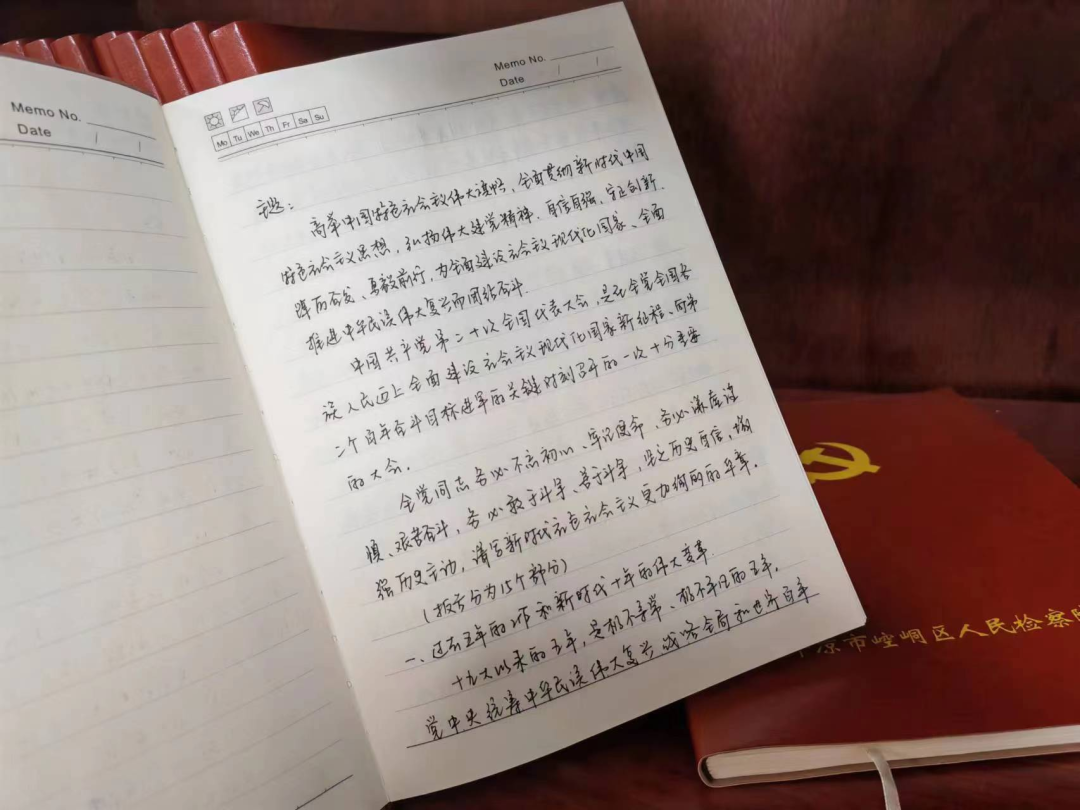 Memo No.
Date / /
Mo Tu We Th Fr Sa Su
Memo No.
Date / /
主题:
高举中国特色社会主义伟大旗帜、全面贯彻新时代中国
特色社会主义思想，弘扬伟大建党精神，自信自强、守正创新、
踔厉奋发、勇毅前行，为全面建设社会主义现代化国家、全面
推进中华民族伟大复兴而团结奋斗.
中国共产党第二十次全国代表大会，是在全党全国各
族人民迈上全面建设社会主义现代化国家新征程、向第
二个百年奋斗目标进军的关键时刻召开的一次十分重要
的大会.
全党同志务必不忘初心、牢记使命，务必谦虚谨
慎、艰苦奋斗，务必敢于斗争、善于斗争，坚定历史自信，增
强历史主动，谱写新时代社会主义更加绚丽的华章.
(报告分为15个部分)
一、过去五年的工作和新时代十年的伟大变革
十九大以来的五年，是极不寻常、极不平凡的五年.
党中央统筹中华民族伟大复兴战略全局和世界百年
凉市崆峒区人民检察院